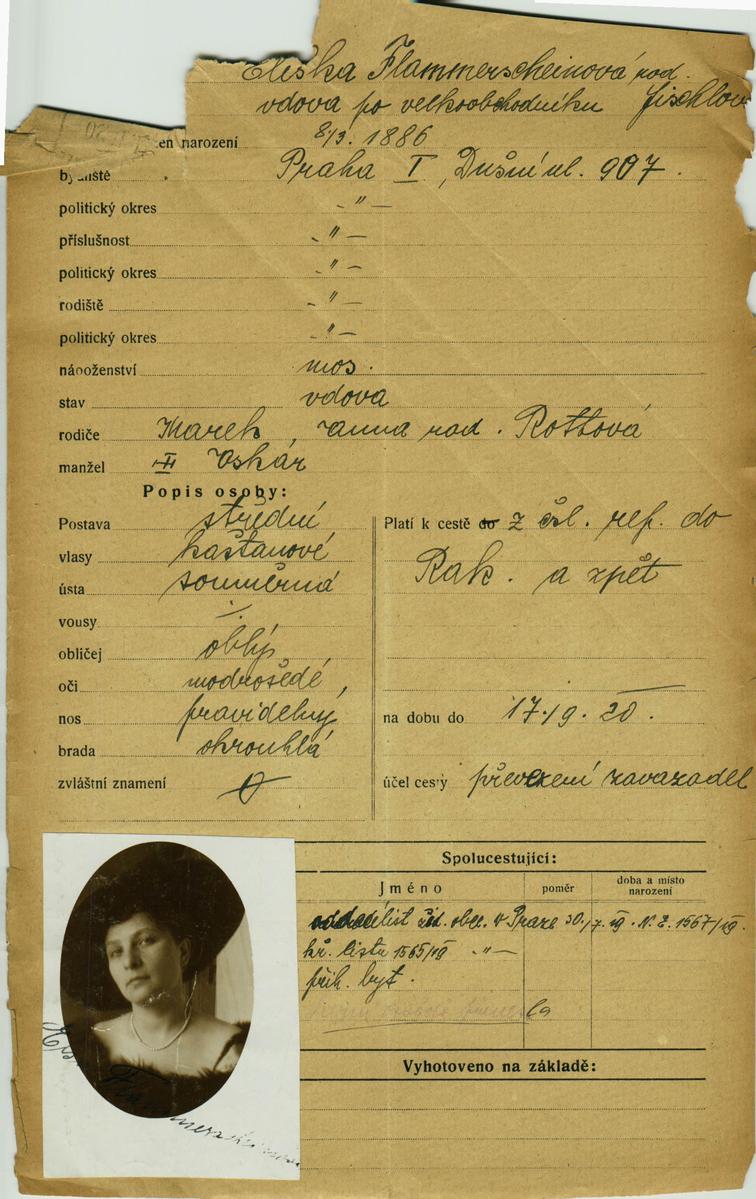 Eliška Flammerscheinová rod.
vdova po velkoobchodníku Fischlová
narození 8/3. 1886
bydliště Praha I, Dušní ul. 907.
politický okres - " -
příslušnost - " -
politický okres - " -
rodiště - " -
politický okres - " -
náboženství mos.
stav vdova
rodiče Marek, Anna rod. Rottová
manžel Oskár
Popis osoby:
Postava střední
vlasy kaštanové
ústa souměrná
vousy ./.
obličej oblý
oči modrošedé
nos pravidelný
brada okrouhlá
zvláštní znamení
Platí k cestě do z čsl. rep. do
Rak. a zpět
na dobu do 17./9. 20.
účel cesty převezení zavazadel
Spolucestující:
Jméno poměr doba a místo narození
oddací list žid. obec. v Praze 30./7. 19. N. E. 1567/19.
kř. listu 1565/19 - " -
přih. byt.
Vyhotoveno na základě: